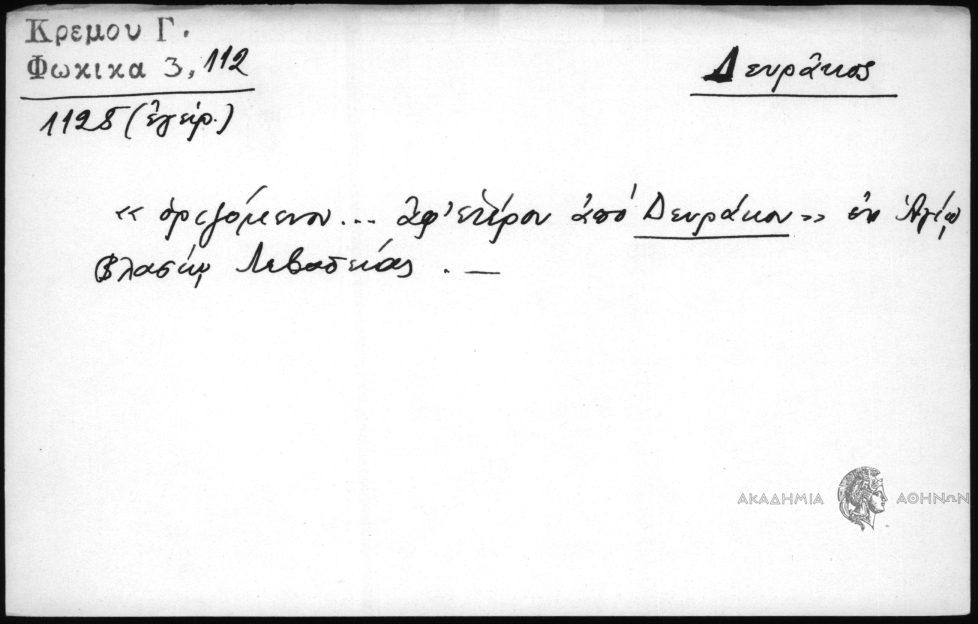 Κρεμου Γ.
Φωκικα 3, 112
Δευράκος
1128 (ἔγειρ.)
«ὁριζόμενον... ἀφ' ἑτέρου ἀπὸ Δευράκου» ἐν Ἁγίῳ
Βλασίῳ Λεβαδείας. —
ΑΚΑΔΗΜΙΑ ΑΘΗΝΩΝ